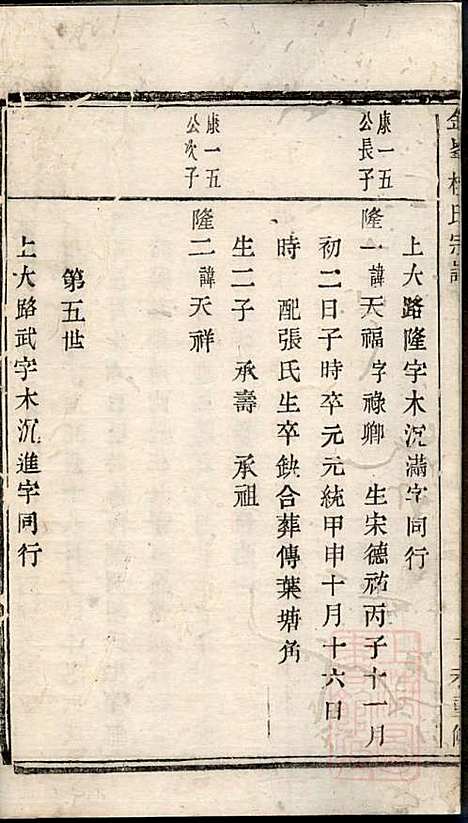 上大路隆字木沉滿字同行
康一五
公長子
隆一諱天福字祿卿 生宋德祐丙子十一月
初二日子時卒元元統甲申十月十六日
時 配張氏生卒缺合葬傳葉塘角
生二子 承壽 承祖
康一五
公次子
隆二諱天祥
第五世
上大路武字木沉進字同行